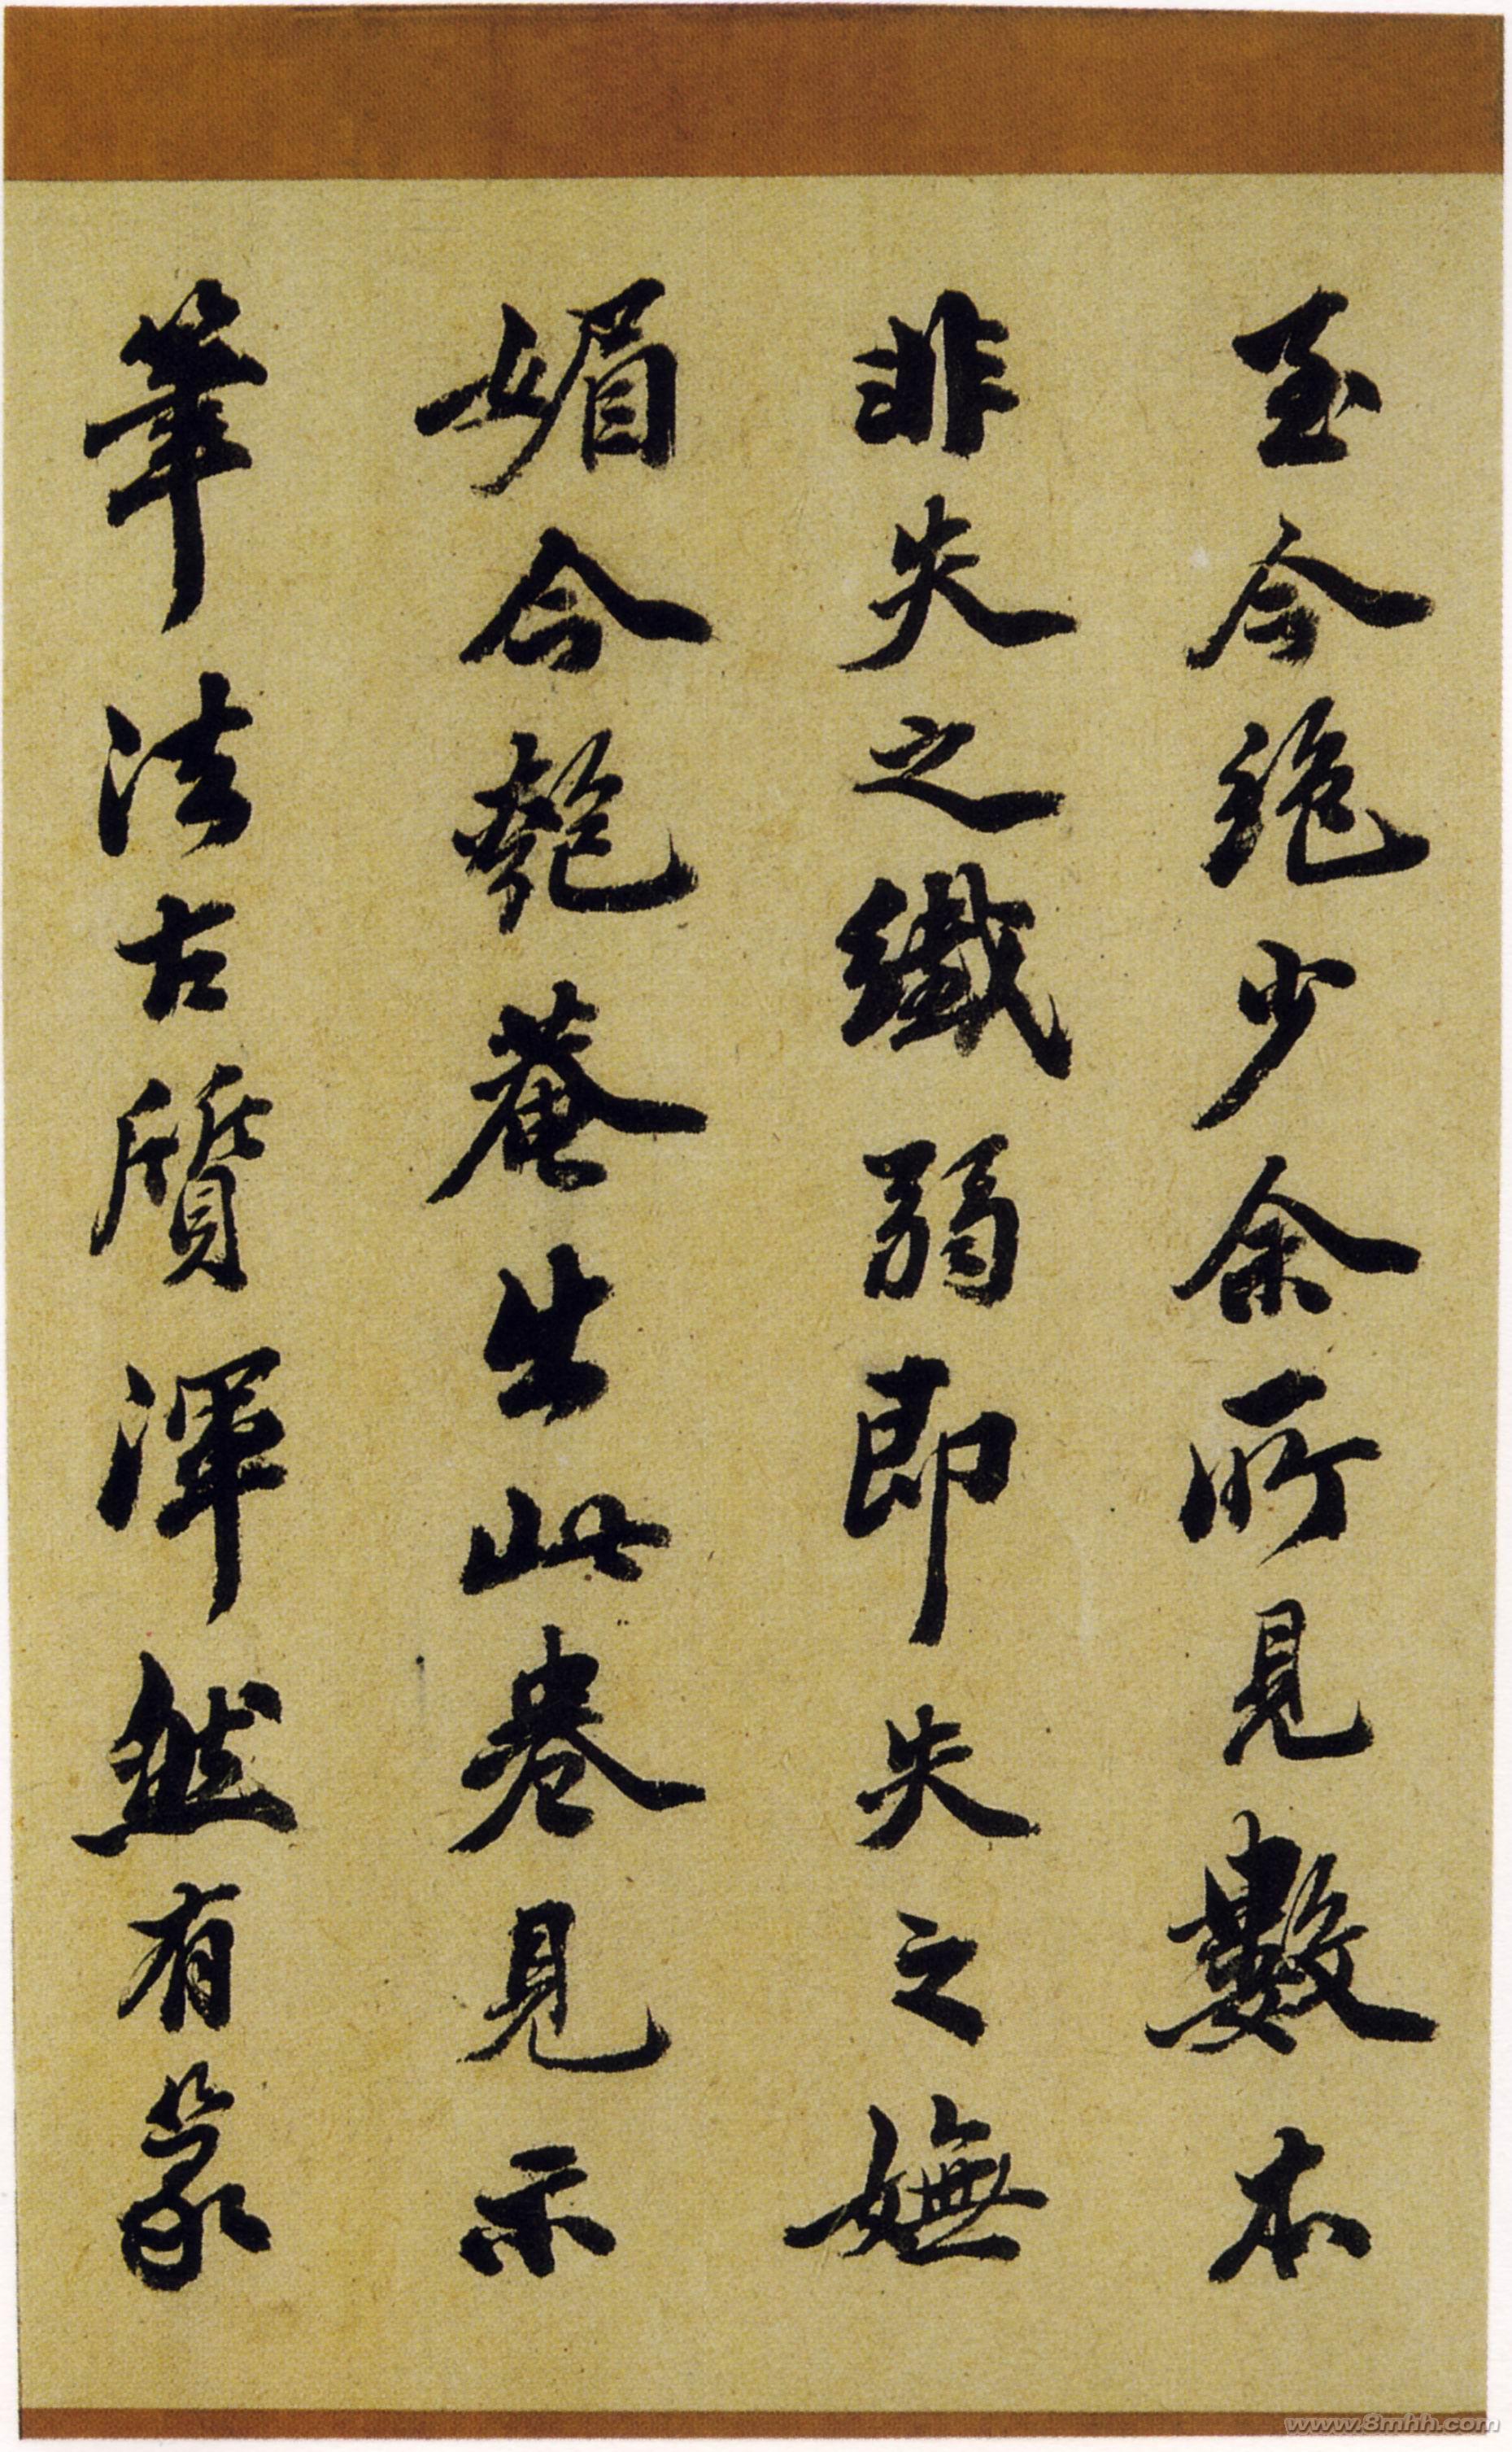 至今絶少余所見數本
非失之纖弱即失之嫵
媚今匏菴出此卷見示
筆法古質渾然有篆
www.8mhh.com